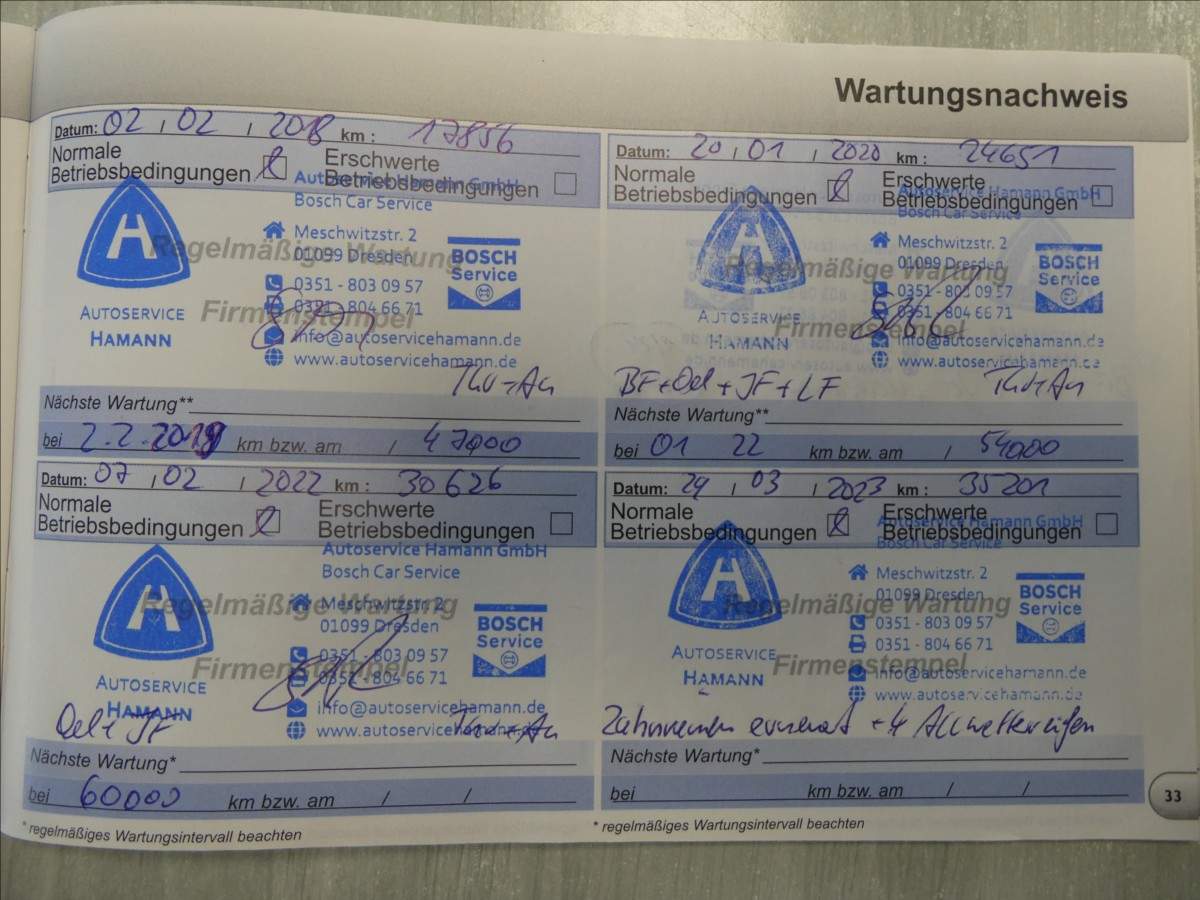 Wartungsnachweis
Datum: 02 / 02 / 2018 km : 17856
Normale Betriebsbedingungen
Erschwerte Betriebsbedingungen
Autoservice Hamann GmbH
Bosch Car Service
Regelmäßige Wartung
Firmenstempel
H
AUTOSERVICE
HAMANN
Meschwitzstr. 2
01099 Dresden
0351 - 803 09 57
0351 - 804 66 71
info@autoservicehamann.de
www.autoservicehamann.de
BOSCH
Service
Nächste Wartung**
bei 2.2.2019 km bzw. am / 47000
Datum: 20 / 01 / 2020 km : 24651
Normale Betriebsbedingungen
Erschwerte Betriebsbedingungen
Autoservice Hamann GmbH
Bosch Car Service
Regelmäßige Wartung
Firmenstempel
A
AUTOSERVICE
HAMANN
Meschwitzstr. 2
01099 Dresden
0351 - 803 09 57
0351 - 804 66 71
info@autoservicehamann.de
www.autoservicehamann.de
BOSCH
Service
BF + Oel + JF + LF
Nächste Wartung**
bei 01 22 km bzw. am / 54000
Datum: 07 / 02 / 2022 km : 30626
Normale Betriebsbedingungen
Erschwerte Betriebsbedingungen
Autoservice Hamann GmbH
Bosch Car Service
Regelmäßige Wartung
Firmenstempel
H
AUTOSERVICE
HAMANN
Meschwitzstr. 2
01099 Dresden
0351 - 803 09 57
0351 - 804 66 71
info@autoservicehamann.de
www.autoservicehamann.de
BOSCH
Service
Oel + JF
Nächste Wartung*
bei 60000 km bzw. am / /
* regelmäßiges Wartungsintervall beachten
Datum: 29 / 03 / 2023 km : 35201
Normale Betriebsbedingungen
Erschwerte Betriebsbedingungen
Autoservice Hamann GmbH
Bosch Car Service
Regelmäßige Wartung
Firmenstempel
H
AUTOSERVICE
HAMANN
Meschwitzstr. 2
01099 Dresden
0351 - 803 09 57
0351 - 804 66 71
info@autoservicehamann.de
www.autoservicehamann.de
BOSCH
Service
Zahnriemen erneuert + 4 Allwetterreifen
Nächste Wartung*
bei km bzw. am / /
* regelmäßiges Wartungsintervall beachten
33